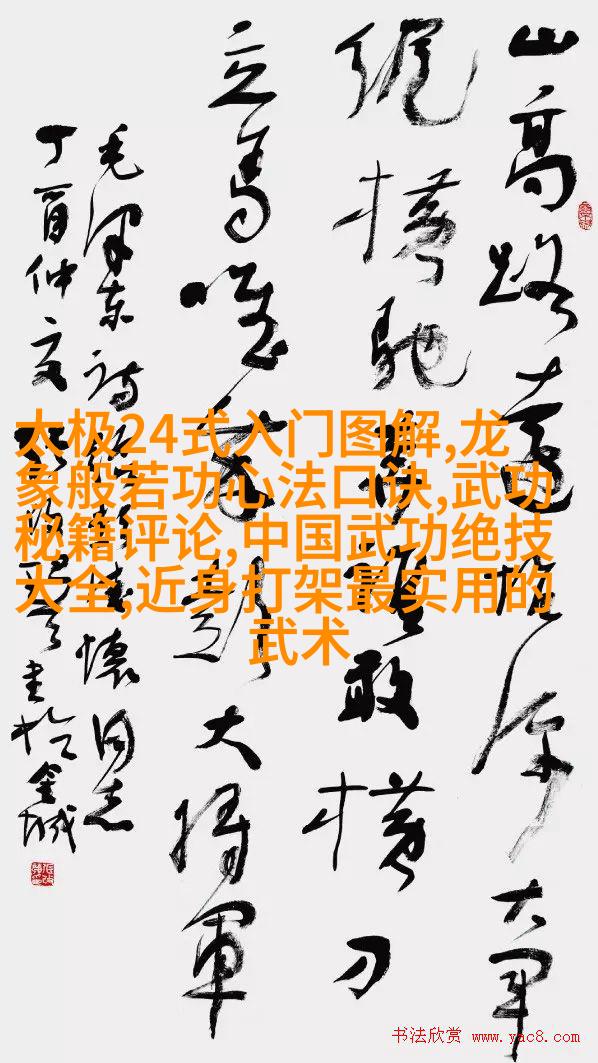 山高路遠坑深大军
纵横驰奔誰敢横刀
立马唯我彭大将軍
毛泽东诗给彭德懷同志
丁酉仲夏 书於金城
太极24式入门图解,龙
象般若功心法口诀,武功
秘籍评论,中国武功绝技
大全,近身打架最实用的
武术
书法欣赏 www.yac8.com